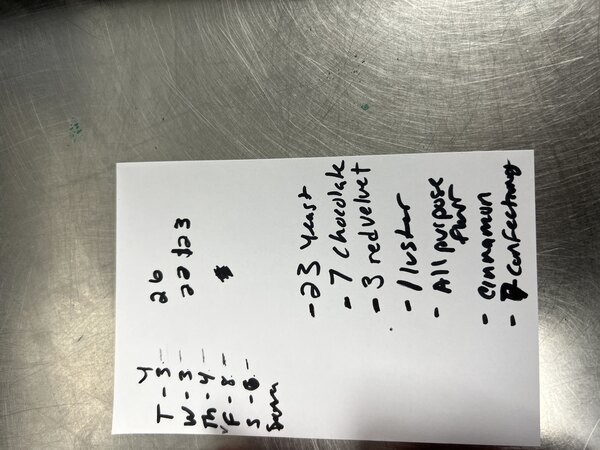 Y
T - 3 -- 26
W - 3 -- 22 $23
Th - 4 --
✓F - 8. --
S - 6 -
Sun
- 23 yeast
- 7 chocolate
- 3 redvelvet
- 1 luster
- All purpose
flour
- Cinnamon
- Confectionary